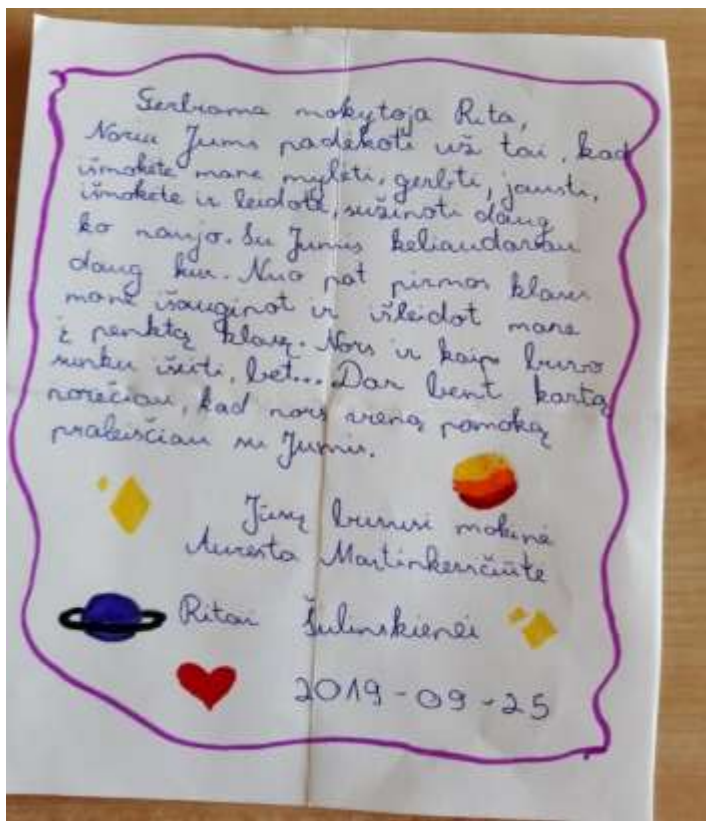 Gerbiama mokytoja Rita,
Noriu Jums padėkoti už tai, kad
išmokėte mane mylėti, gerbti, jausti,
išmokėte ir leidote, sužinoti daug
ko naujo. Su Jumis keliaudavau
daug kur. Nuo pat pirmos klasės
mane išauginot ir išleidot mane
į penktą klasę. Nors ir kaip buvo
sunku išeiti, bet... Dar bent kartą
norėčiau, kad nors vieną pamoką
praleisčiau su Jumis.
Jūsų buvusi mokinė
Martinkevičiūtė
Ritai Šulinskienei
2019-09-25